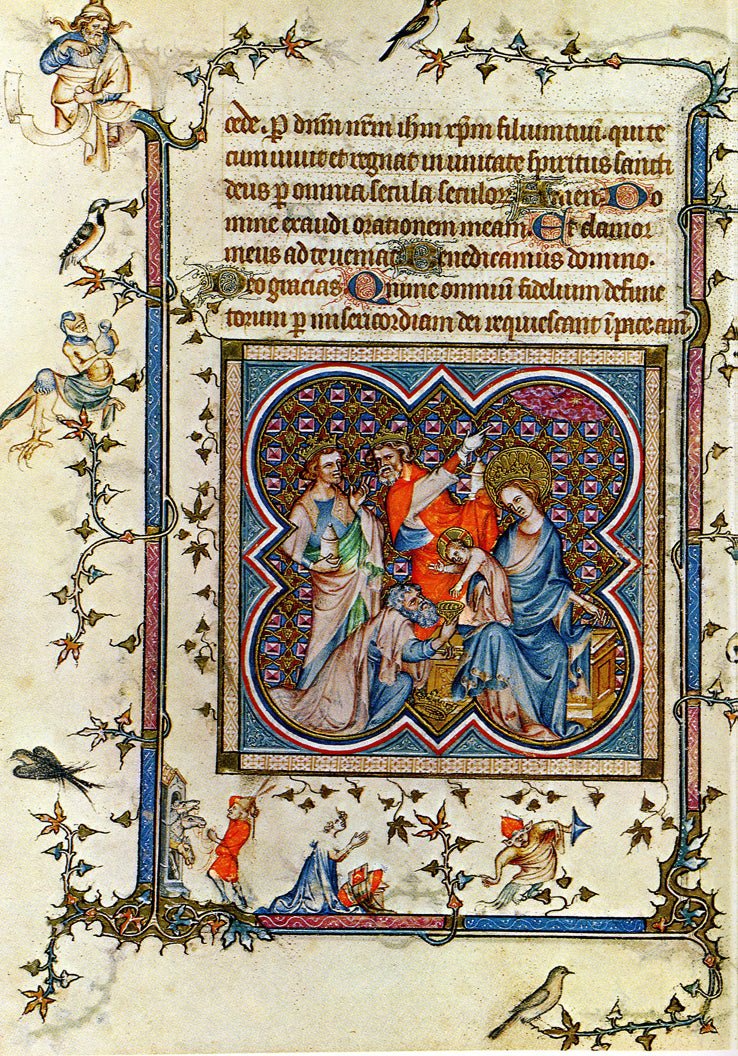 cede. P dnm nrm ihm xpm filium tuu. qui te
cum uiuit et regnat in unitate spiritus sancti
deus p omnia secula seculor Amen. Do
mine exaudi orationem meam. Et clamor
meus ad te ueniat Benedicamus domino.
Deo gracias Anime omniu fidelium defunc
torum p misericordiam dei requiescant i pace am